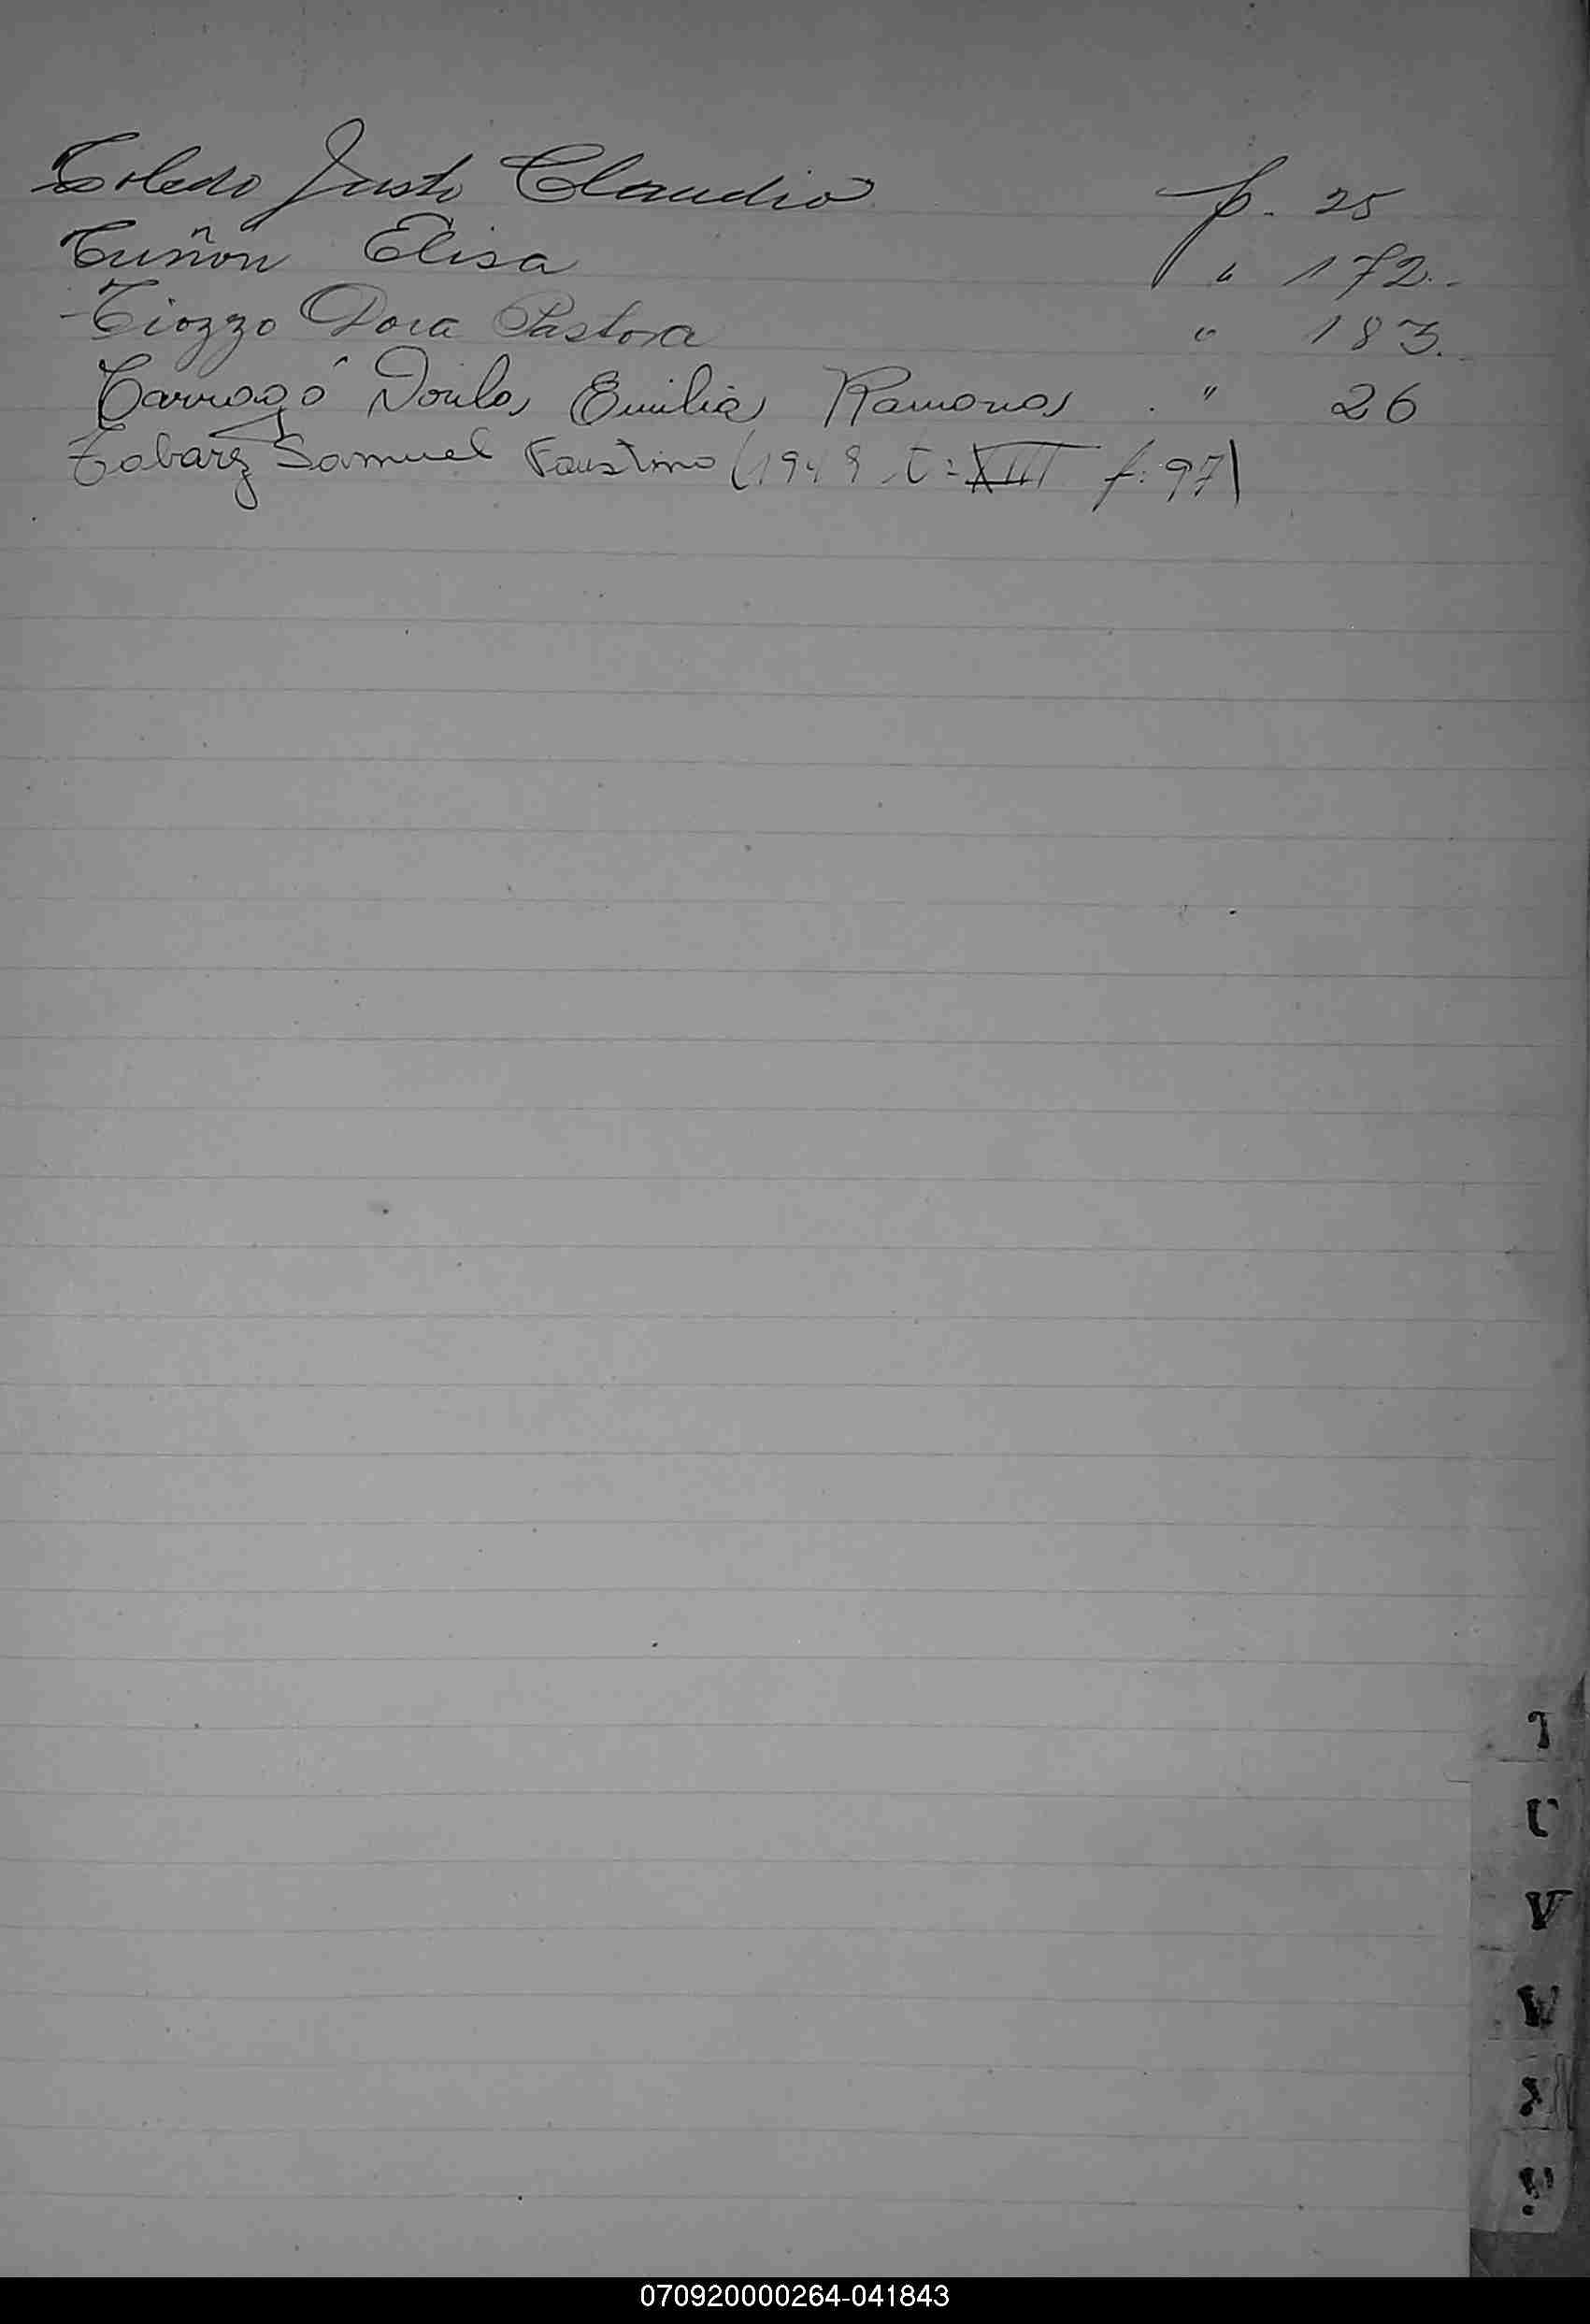 Toledo Justo Claudio f. 25
Tuñón Elisa " 172.
Tiozzo Dora Pastora " 183.
Tarragó Emilia Ramona " 26
Tabarez Samuel Faustino (1949 t: XIII f: 97)
T
U
V
W
070920000264-041843